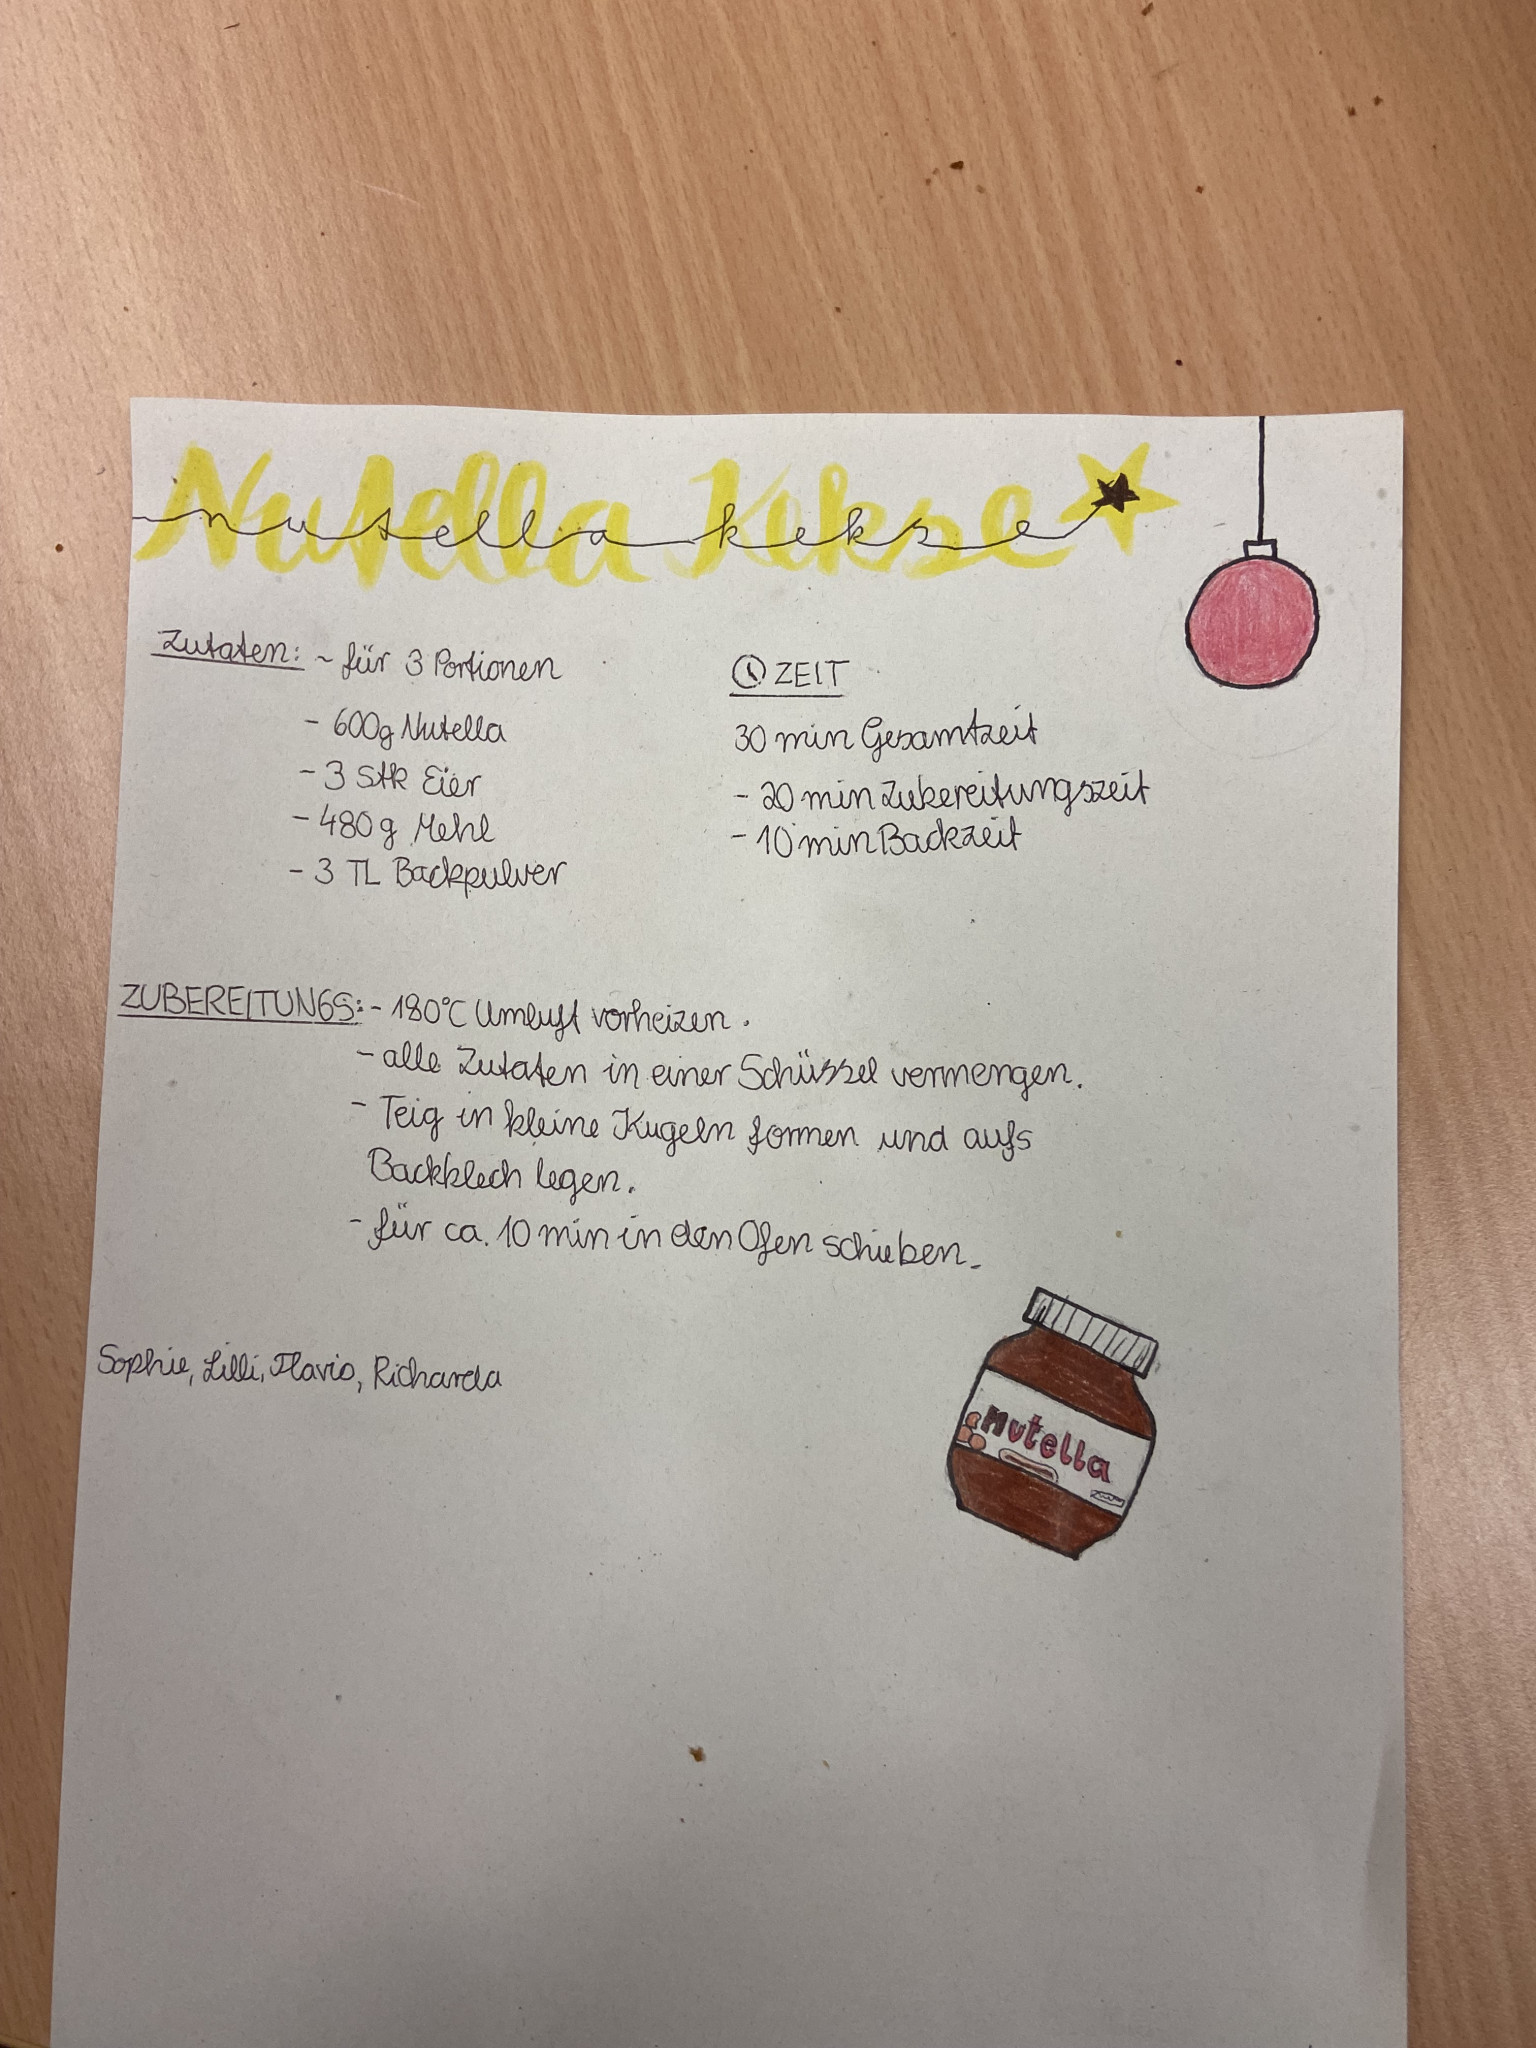 Nutella Kekse
nutella kekse
Zutaten: ~ für 3 Portionen
- 600g Nutella
- 3 Stk Eier
- 480g Mehl
- 3 TL Backpulver
ZEIT
30 min Gesamtzeit
- 20 min Zubereitungszeit
- 10 min Backzeit
ZUBEREITUNGS: - 180°C Umluft vorheizen.
- alle Zutaten in einer Schüssel vermengen.
- Teig in kleine Kugeln formen und aufs
Backblech legen.
- für ca. 10 min in den Ofen schieben.
Sophie, Lilli, Flavio, Richarda
Nutella